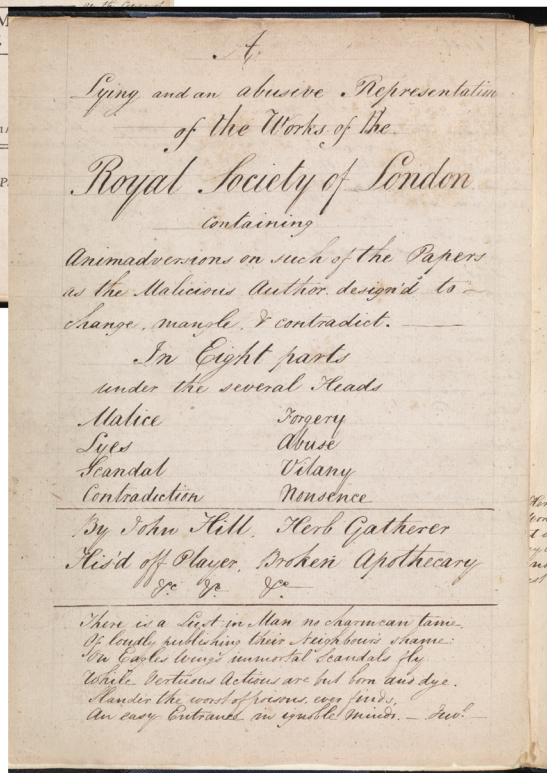 A
Lying and an abusive Representation
of the Works of the
Royal Society of London
containing
Animadversions on such of the Papers
as the Malicious Author design'd to
change, mangle, & contradict.
In Eight parts
under the several Heads
Malice Forgery
Lyes Abuse
Scandal Vilany
Contradiction Nonsence
By John Hill, Herb Gatherer
His'd off Player, Broken Apothecary
&c &c &c
There is a Lust in Man no charm can tame,
Of loudly publishing their Neighbour's shame:
On Eagles Wings immortal Scandals fly
While Vertuous Actions are but born and dye.
Slander the worst of poisons, ever finds,
An easy Entrance in ignoble Minds. — Juvl.